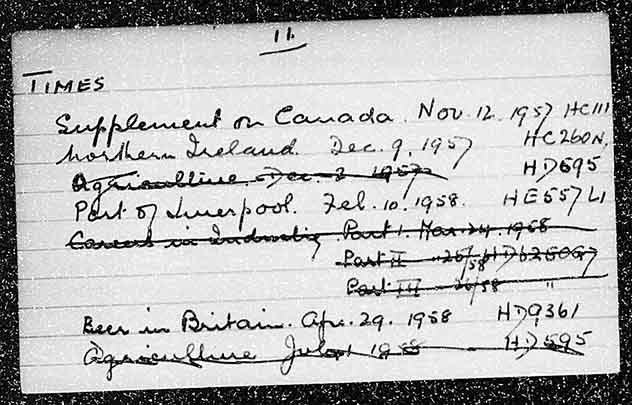 11.
TIMES
Supplement on Canada. Nov. 12. 1957 HC111
Northern Ireland. Dec. 9. 1957 HC260N,
Agriculture. Dec. 3 1957 HD595
Port of Liverpool. Feb. 10. 1958. HE557L1
Careers in Industry Part I. Mar. 24. 1958
Part II 25/58 HD6250G7
Part III 26/58 "
Beer in Britain. Apr. 29. 1958 HD9361
Agriculture July 1 1958 HD595